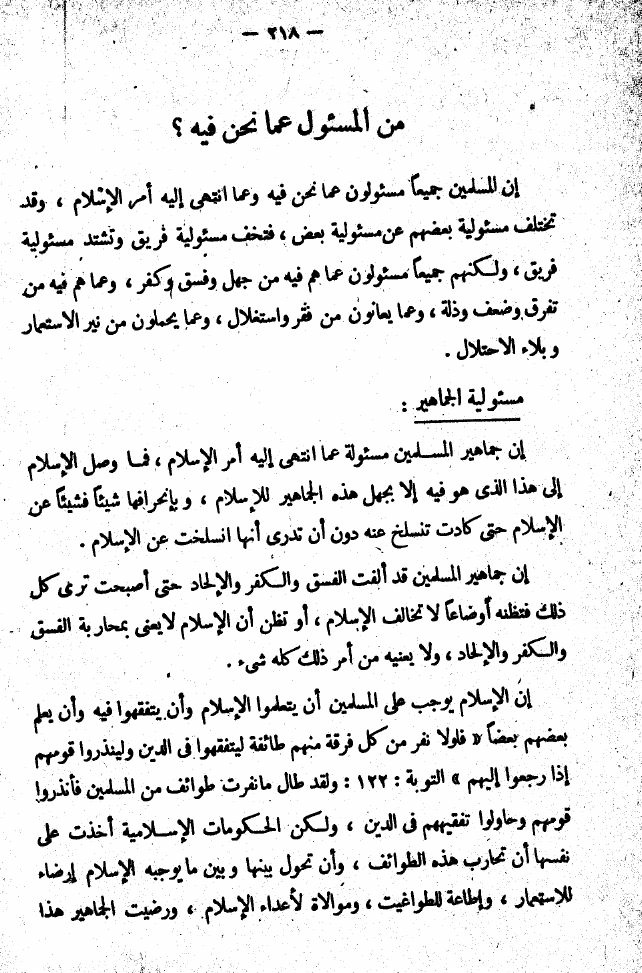 — ٢١٨ —
من المسئول عما نحن فيه ؟
إن المسلمين جميعاً مسئولون عما نحن فيه وعما انتهى إليه أمر الإسلام ، وقد
تختلف مسئولية بعضهم عن مسئولية بعض ، فتخف مسئولية فريق وتشتد مسئولية
فريق ، ولكنهم جميعاً مسئولون عما هم فيه من جهل وفسق وكفر ، وعما هم فيه من
تفرق وضعف وذلة ، وعما يعانون من فقر واستغلال ، وعما يحملون من نير الاستعمار
وبلاء الاحتلال .
مسئولية الجماهير :
إن جماهير المسلمين مسئولة عما انتهى إليه أمر الإسلام ، فما وصل الإسلام
إلى هذا الذى هو فيه إلا بجهل هذه الجماهير للإسلام ، وبإنحرافها شيئاً فشيئاً عن
الإسلام حتى كادت تنسلخ عنه دون أن تدرى أنها انسلخت عن الإسلام .
إن جماهير المسلمين قد ألفت الفسق والكفر والإلحاد حتى أصبحت ترى كل
ذلك فتظنه أوضاعاً لا تخالف الإسلام ، أو تظن أن الإسلام لا يعنى بمحاربة الفسق
والكفر والإلحاد ، ولا يعنيه من أمر ذلك كله شىء .
إن الإسلام يوجب على المسلمين أن يتعلموا الإسلام وأن يتفقهوا فيه وأن يعلم
بعضهم بعضاً « فلولا نفر من كل فرقة منهم طائفة ليتفقهوا فى الدين ولينذروا قومهم
إذا رجعوا إليهم » التوبة : ١٢٢ : ولقد طال ما نفرت طوائف من المسلمين فأنذروا
قومهم وحاولوا تفقيههم فى الدين ، ولكن الحكومات الإسلامية أخذت على
نفسها أن تحارب هذه الطوائف ، وأن تحول بينها وبين ما يوجبه الإسلام إرضاء
للاستعمار ، وإطاعة للطواغيت ، وموالاة لأعداء الإسلام ، ورضيت الجماهير هذا